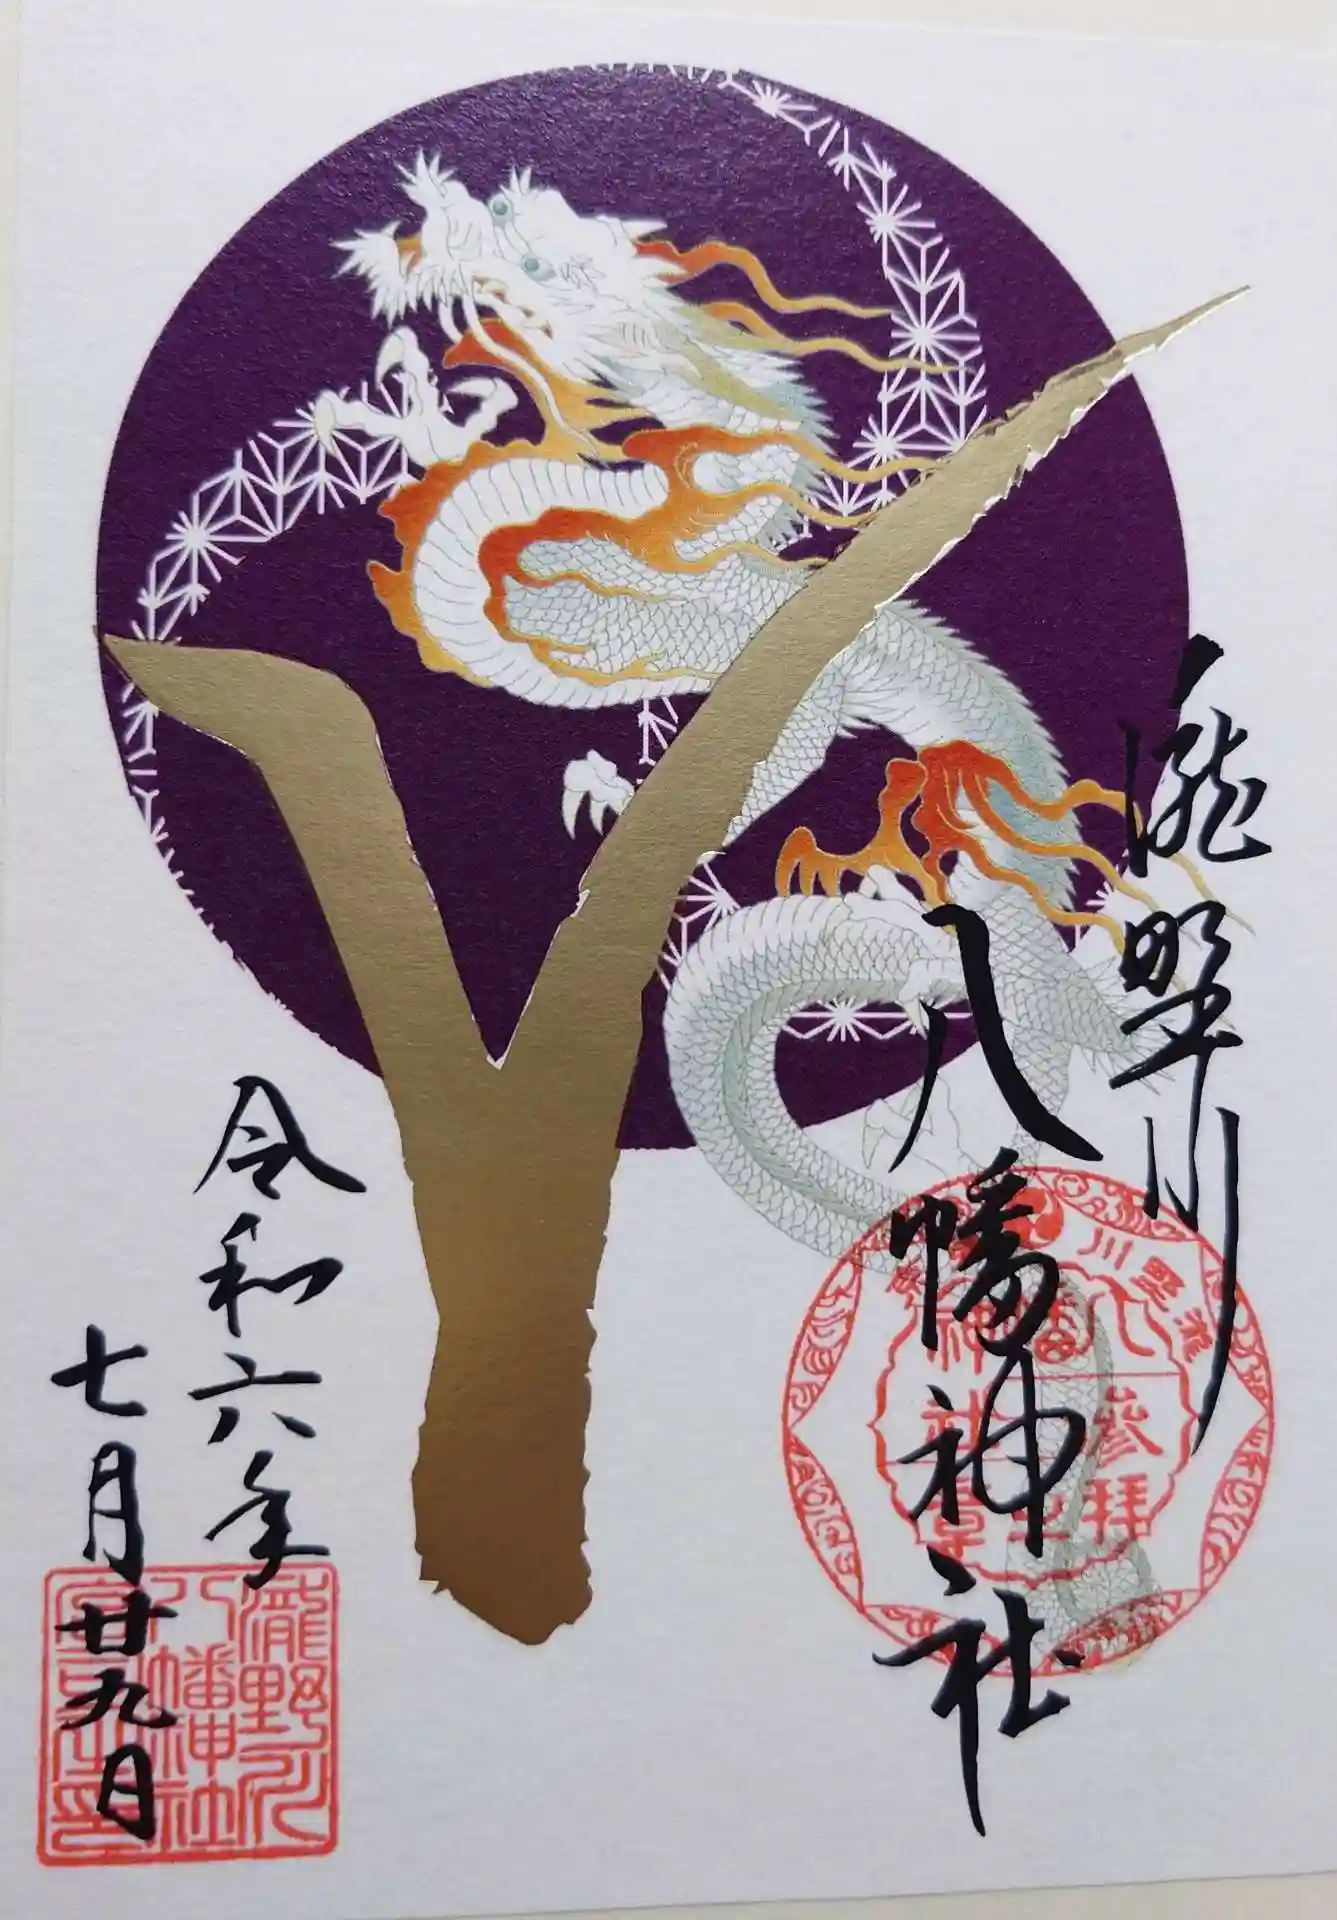 瀧野川
八幡神社
Y
令和六年
七月廿九日
瀧野川
八幡
神社
参拝
之章
瀧野川
八幡神社
宮司之印